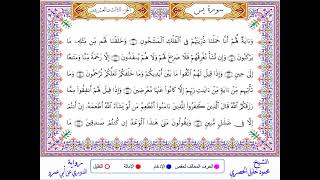 سورة يس
الجزء الثالث والعشرون
وَءَايَةٌ لَّهُمْ أَنَّا حَمَلْنَا ذُرِّيَّتَهُمْ فِي الْفُلْكِ الْمَشْحُونِ وَخَلَقْنَا لَهُم مِّن مِّثْلِهِ مَا
يَرْكَبُونَ وَإِن نَّشَأْ نُغْرِقْهُمْ فَلَا صَرِيخَ لَهُمْ وَلَا هُمْ يُنقَذُونَ إِلَّا رَحْمَةً مِّنَّا وَمَتَاعًا
إِلَىٰ حِينٍ وَإِذَا قِيلَ لَهُمُ اتَّقُوا مَا بَيْنَ أَيْدِيكُمْ وَمَا خَلْفَكُمْ لَعَلَّكُمْ تُرْحَمُونَ وَمَا
تَأْتِيهِم مِّنْ ءَايَةٍ مِّنْ ءَايَٰتِ رَبِّهِمْ إِلَّا كَانُوا عَنْهَا مُعْرِضِينَ وَإِذَا قِيلَ لَهُمْ أَنفِقُوا مِمَّا
رَزَقَكُمُ اللَّهُ قَالَ الَّذِينَ كَفَرُوا لِلَّذِينَ ءَامَنُوا أَنُطْعِمُ مَن لَّوْ يَشَاءُ اللَّهُ أَطْعَمَهُ إِنْ أَنتُمْ
إِلَّا فِي ضَلَٰلٍ مُّبِينٍ وَيَقُولُونَ مَتَىٰ هَٰذَا الْوَعْدُ إِن كُنتُمْ صَٰدِقِينَ مَا
الشيخ
محمود خليل الحصري
الحرف المخالف لحفص الإدغام الإمالة التقليل
برواية
الدوري عن أبي عمرو